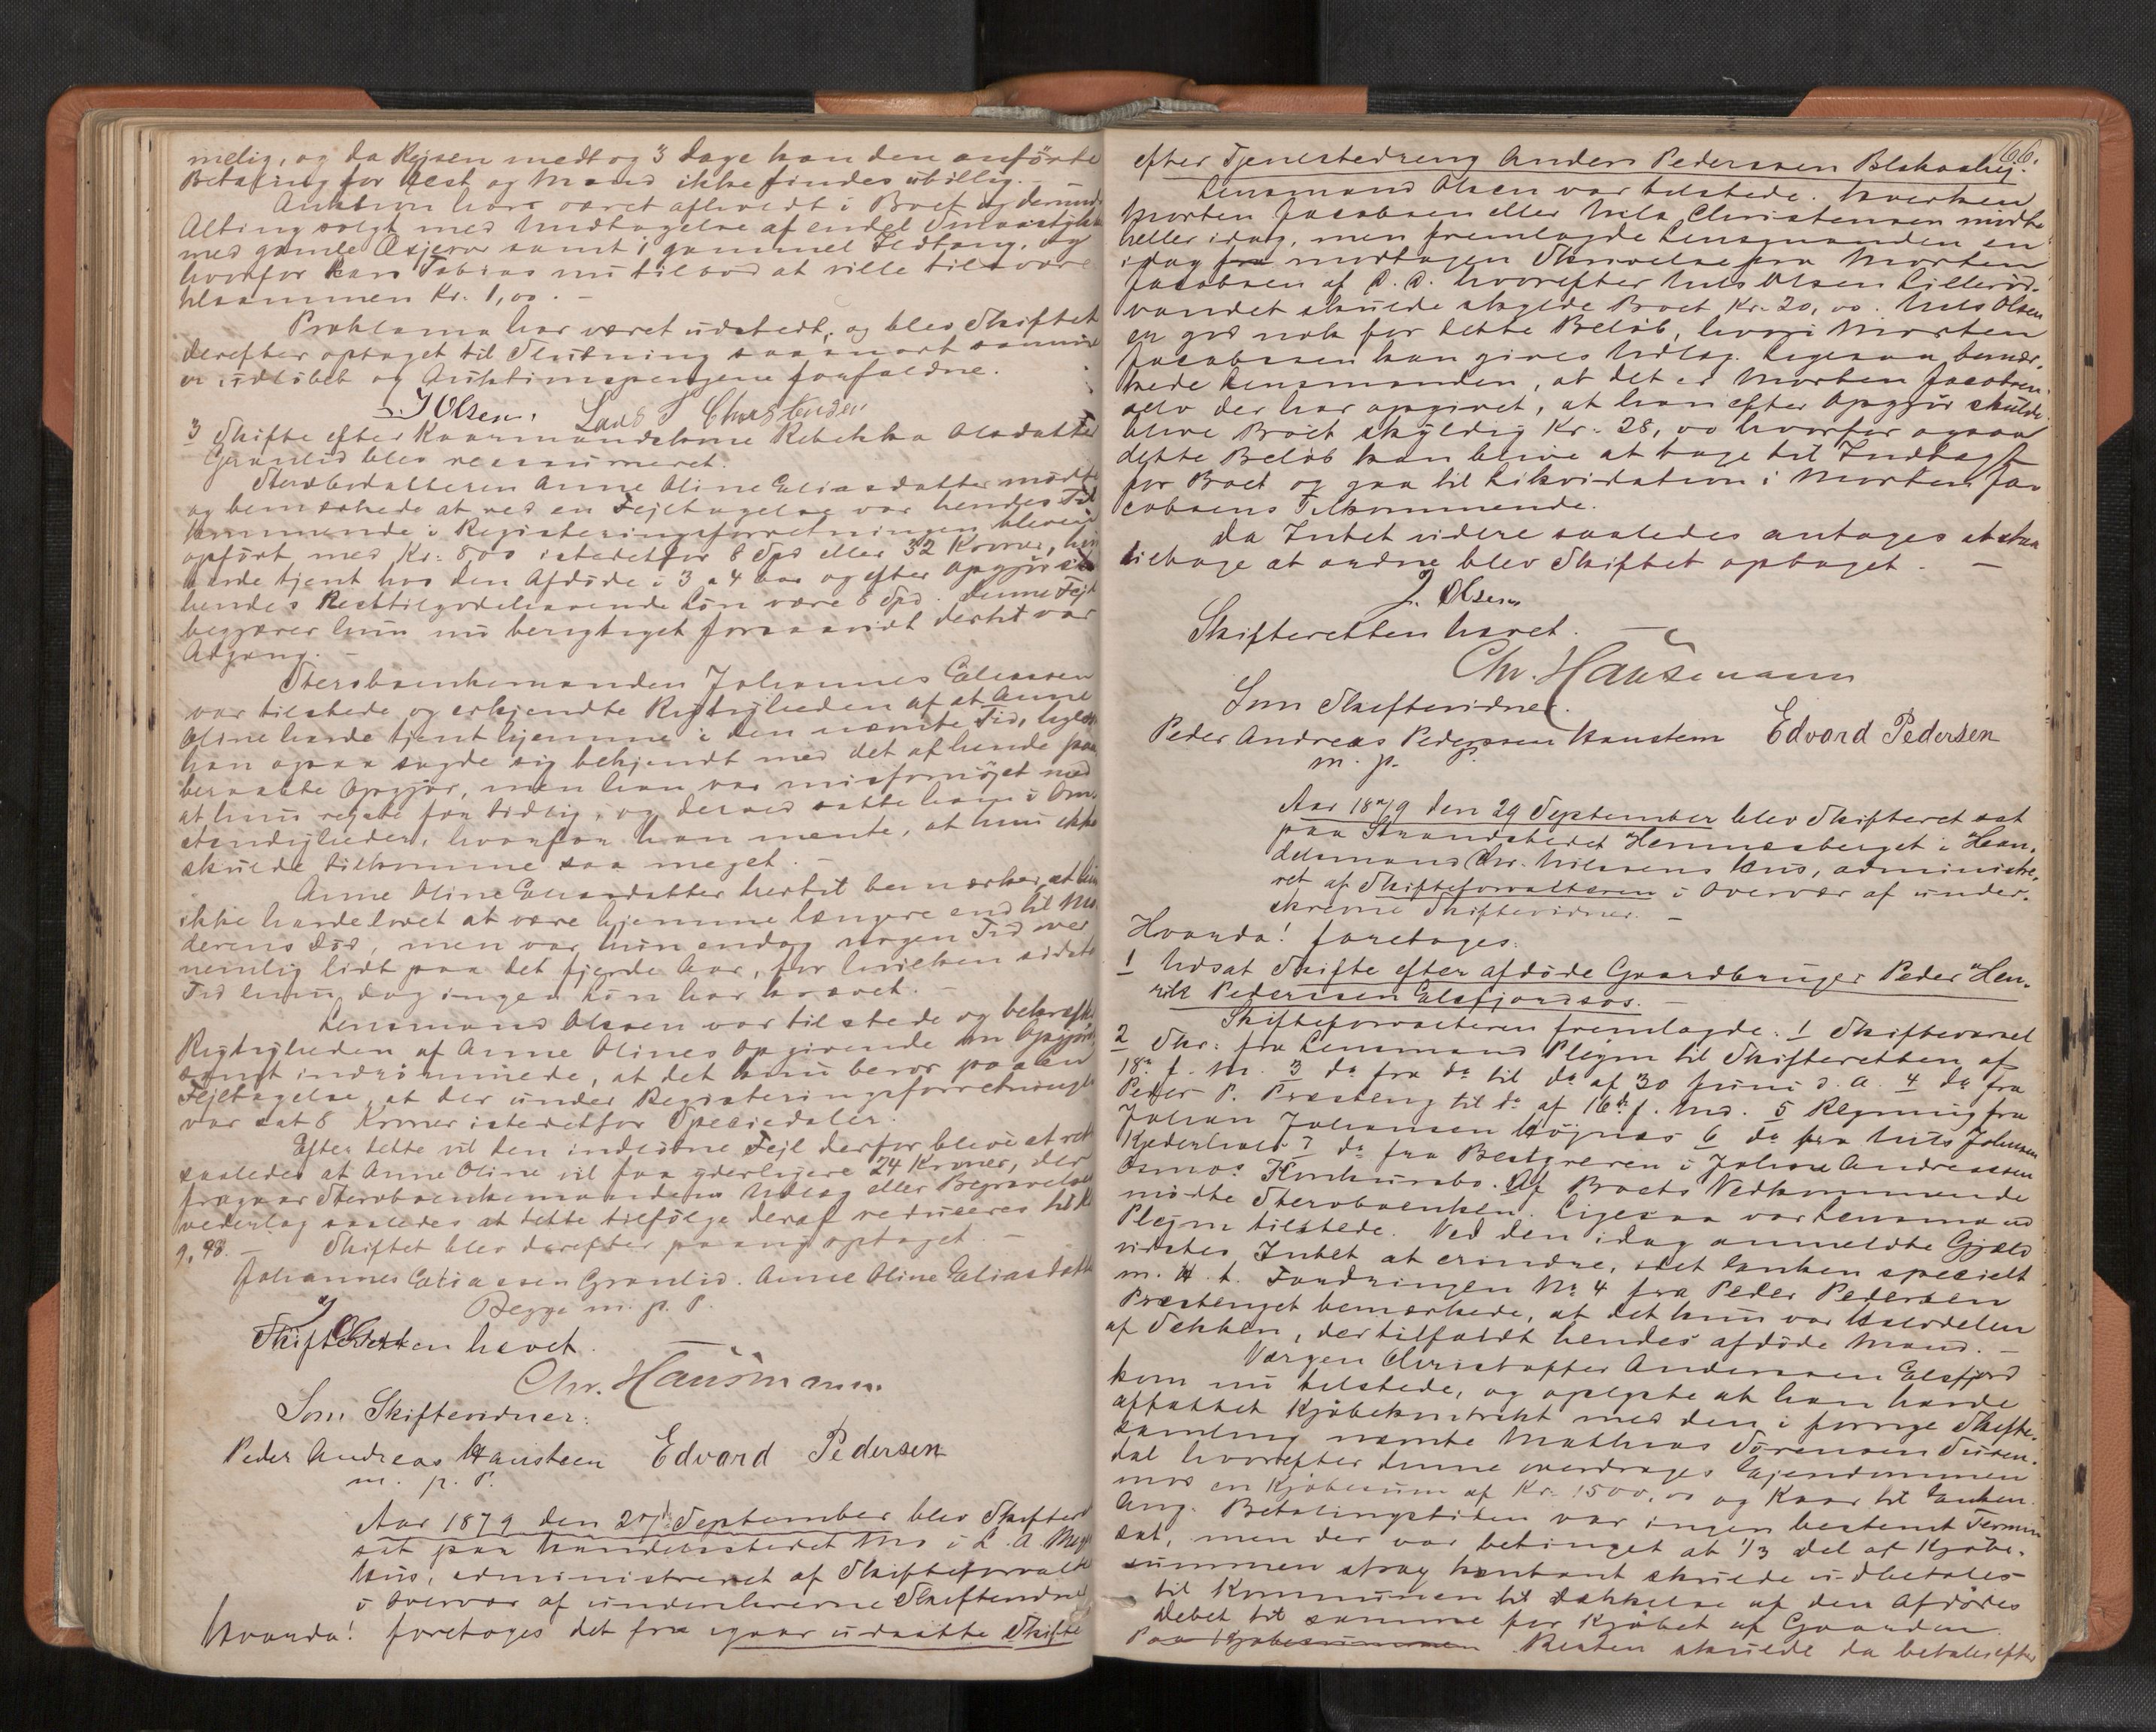 melig, og da Rejsen medtog 3 Dage kan den anførte
Betaling for Hest og Mand ikke findes ubillig. –
Auktion har været afholdt i Boet og derunder
Alting solgt med Undtagelse af endel Smaastykker
med gamle Æsjerver samt 1 gammel Ildtang, og
hvorfor Lars Tobias nu tilbød at ville tilsvare
tilsammen Kr. 1,00. –
Proklama har været udstedt, og blev Skiftet
derefter optaget til Slutning saasnart samme
er udløbet og Auktionspengene forfaldne.
J Olsen. Lars T Christensen
3 Skifte efter Kaarmandskone Rebekka Olsdatter
Granlid blev ressumeret.
Stervbodatteren Anne Oline Eliasdatter mødte
og bemærkede at ved en Fejltagelse var hendes Til
kommende i Registeringsforretningen bleven
opført med Kr: 8,00 istedetfor 8 Spd eller 32 Kroner, hun
havde tjent hos den Afdøde i 3 a 4 Aar og efter Opgjør sk
hendes Resttilgodehavende Løn være 8 Spd. Denne Fejl
begjærer hun nu berigtiget forsaavidt dertil var
Adgang. –
Stervboenkemanden Johannes Eliassen
var tilstede og erkjendte Rigtigheden af at Anne
Oline havde tjent hjemme i den nævnte Tid, ligesom
han ogsaa sagde sig bekjendt med det af hende paa
beraabte Opgjør, men han var misfornøjet med
at hun rejste for tidlig, og derved satte ham i Om-
stændigheder, hvorfor han mente, at hun ikke
skulde tilkomme saa meget. –
Anne Oline Eliasdatter hertil bemærker, at hun
ikke havde lovet at være hjemme længere end til Mo
derens Død, men var hun endog nogen Tid over
nemlig lidt paa det fjerde Aar, for hvilken sidste
Tid hun dog ingen Løn har krævet. –
Lensmand Olsen var tilstede og bekræfte
Rigtigheden af Anne Olines Opgivende om Opgjøret
samt indrømmede, at det kun beror paa en
Fejltagelse, at der under Registeringsforretningen
var sat 8 Kroner istedetfor Speciedaler.
Efter dette vil den indløbne Fejl derfor blive at rette
saaledes at Anne Oline vil faa yderligere 24 Kroner, der
fragaar Stervboenkemandens Udlæg eller Begravelses
vederlag saaledes at dette tilfølge deraf reduseres til Kr
9,98. – Skiftet blev derefter paany optaget. –
Johannes Eliassen Granlid. Anne Oline Eliasdatter
Begge m. p. P.
J Olsen
Skifteretten hævet.
Chr. Hausmann.
Som Skiftevidner:
Peder Andreas Hansteen Edvard Pedersen
m. p. P.
Aar 1879 den 27de September blev Skifteret
sat paa Handelsstedet Mo i L. A. Meyers
Hus, administreret af Skifteforvalte
i Overvær af underskrevne Skiftevidner
Hvorda! foretoges det fra igaar udsatte Skifte
66.
efter Tjenestedreng Anders Pederssen Blakaahei.
Lensmand Olsen var tilstede. Hverken
Morten Jacobsen eller Nils Christensen mødte
heller idag, men fremlagde Lensmanden en
idag fra modtagen Skrivelse fra Morten
Jacobsen af D. D. hvorefter Nils Olsen Lillerød-
vandet skulde skylde Boet Kr. 20,00. Nils Olsen
er god nok for dette Beløb, hvori Morten
Jacobsen kan gives Udlæg. Ligesaa bemær-
kede Lensmanden, at det er Morten Jacobsen
selv der har opgivet, at han efter Opgjør skulde
blive Boet skyldig Kr. 28,00 hvorfor ogsaa
dette Beløb kan blive at tage til Indtægt
for Boet og gaa til Likvidation i Morten Ja-
cobsens Tilkommende.
Da Intet videre saaledes antages at staa
tilbage at ordne blev Skiftet optaget. –
J. Olsen
Skifteretten hævet. –
Chr. Hausemann
Som Skiftevidner.
Peder Andreas Pederssen Hanstein Edvard Pedersen
m. p. P.
Aar 1879 den 29 September blev Skifteret sat
paa Strandstedet Hemnæsberget i Han-
delsmand Chr. Nilssens Hus, administre-
ret af Skifteforvalteren i Overvær af under-
skrevne Skiftevidner. –
Hvorda! foretoges:
1 Udsat Skifte efter afdøde Gaardbruger Peder Hen-
rik Pederssen Elsfjordsos. –
Skifteforvalteren fremlagde: 1 Skiftevarsel
2 Skr: fra Lensmand Plejm til Skifteretten af
18de f. M. 3 do fra do til do af 30 Juni d. A. 4 do fra
Peder P. Præsteng til do af 16de f. Md. 5 Regning fra
Johan Johansen Høgnæs 6 do fra Nils Johnsen
Kjederhals 7 do fra Bestyreren i Johan Andreassen
Osmos Konkursbo. Af Boets Vedkommende
mødte Stervboenken. Ligesaa var Lensmand
Plejm tilstede. Ved den idag anmeldte Gjæld
vidstes Intet at erindre, idet Enken specielt
m. H. t. Fordringen No 4 fra Peder Pedersen
Præstenget bemærkede, at det kun var Halvdelen
af Sekken, der tilfaldt hendes afdøde Mand. –
Værgen Christoffer Anderssen Elsfjord
kom nu tilstede, og oplyste at han havde
affattet Kjøbekontrakt med den i forrige Skifte-
samling nævnte Mathias Sørensen Suren-
dal hvorefter denne overdrages Ejendommen
mod en Kjøbesum af Kr. 1500,00 og Kaar til Enken.
Ang. Betalingstiden var ingen bestemt Termin
sat, men der var betinget at 1/3 del af Kjøbe-
summen strag kontant skulde udbetales
til Kommunen til Dækkelse af den Afdødes
Debet til samme for Kjøbet af Gaarden.
Paa Kjøbesummen Resten skulde da betales efter